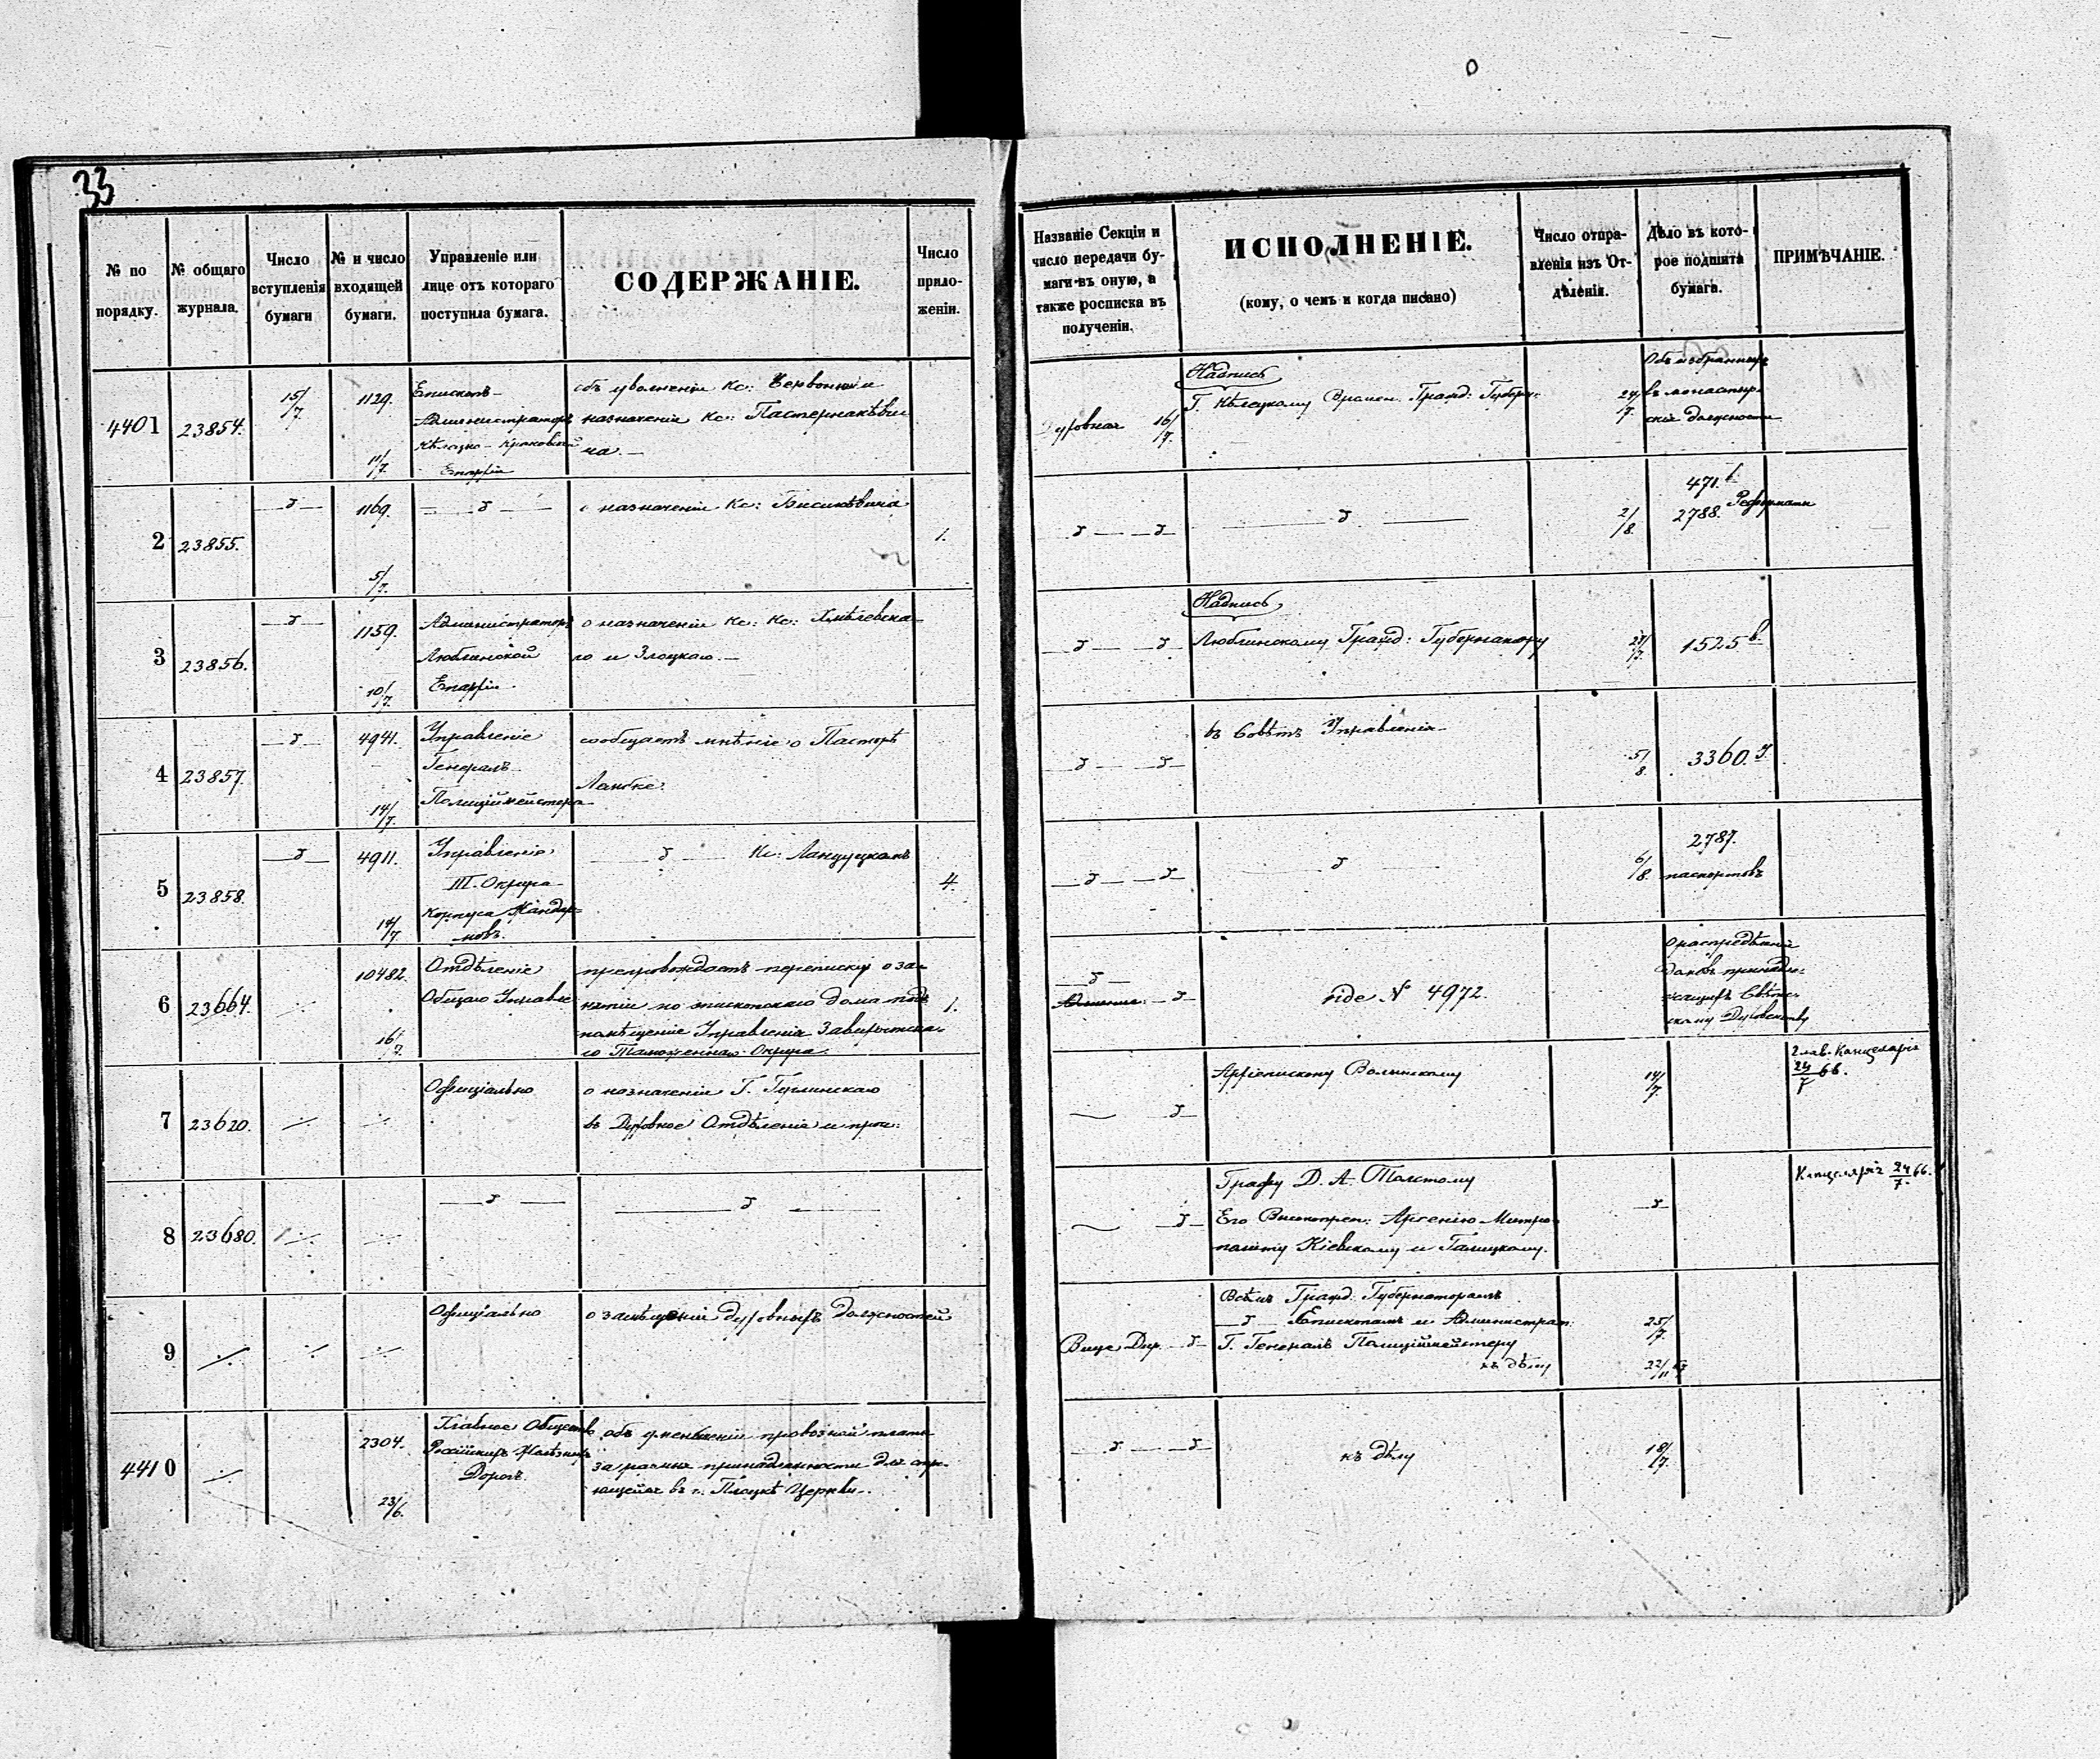 33
№ по порядку.
№ общаго журнала.
Число вступленія бумаги
№ и число входящей бумаги.
Управленіе или лице отъ котораго поступила бумага.
СОДЕРЖАНІЕ.
Число приложеніи.
Названіе Секціи и число передачи бумаги въ оную, а также росписка въ полученіи.
ИСПОЛНЕНІЕ.
(кому, о чемъ и когда писано)
Число отправленія изъ Отдѣленія.
Дѣло въ которое подшита бумага.
ПРИМѢЧАНІЕ.
4401 23854. 15/7. 1129. 11/7.
Епископъ
Администраторъ
Кѣлецко-Краковской
Епархіи
объ уволненіи Кс: Червонки и
назначеніи Кс: Пастернакѣви
ча.
Духовная 16/7.
Надпись
Г. Кѣлецкому Времен. Гражд: Губерн:
24/7.
Объ избранныхъ
въ монастыр
скія должности
2 23855. 1169. 5/7.
о назначеніи Кс:
1.
2/8.
471.
2788. Реформаты
3 23856. 1159. 10/7.
Администраторъ
Люблинской
Епархіи
о назначеніи Кс: Кс: Хмѣлевска
го и Злоцкаго.
Надпись
Люблинскому Гражд: Губернатору
27/7.
1525
4 23857. 4941. 14/7.
Управленіе
Генералъ
Полиційместера
сообщаетъ мнѣніе о Пасторѣ
Ланбке.
въ Совѣтъ Управленія
5/8.
3360.
5 23858. 4911. 14/7.
Управленіе
III. Округа
Корпуса Жандар=
мовъ.
Кс: Ланцуцкомъ
4.
6/8.
2787.
паспортовъ
6 23664. 10482. 16/7.
Отдѣленіе
Общаго Управле
препровождаетъ переписку о за-
нятіи по епископскаго дома подъ
помѣщеніе Управленія Завихостска-
го Таможеннаго Округа.
1.
vide № 4972.
О распредѣленіи
домовъ принадле=
жащихъ Свѣтс-
кому Духовенству
7 23620.
Офиціально
о назначеніи Г.
въ Духовное Отдѣленіе и проч:
Архіепископу Волынскому
14/7.
Глав. Канцелярія
24/7 66.
8 23680.
Графу Д. А. Толстому
Его Высокопреп: Арсенію Митро
политу Кіевскому и Галицкому.
Канцелярія 24/7. 66.
9
Офиціально
о замѣщеніи духовныхъ должностей
Вице Дир.
Всѣмъ Гражд. Губернаторамъ
Епископамъ и Администрат:
Г. Генералъ Полиційместеру
къ дѣлу
25/7.
22/11
4410 2304. 23/6.
Главное Общество
Россійскихъ Желѣзныхъ
Дорогъ.
объ уменьшеніи провозной платы
за разныя принадлежности для стро-
ющейся въ г. Плоцкѣ Церкви.
къ дѣлу
18/7.